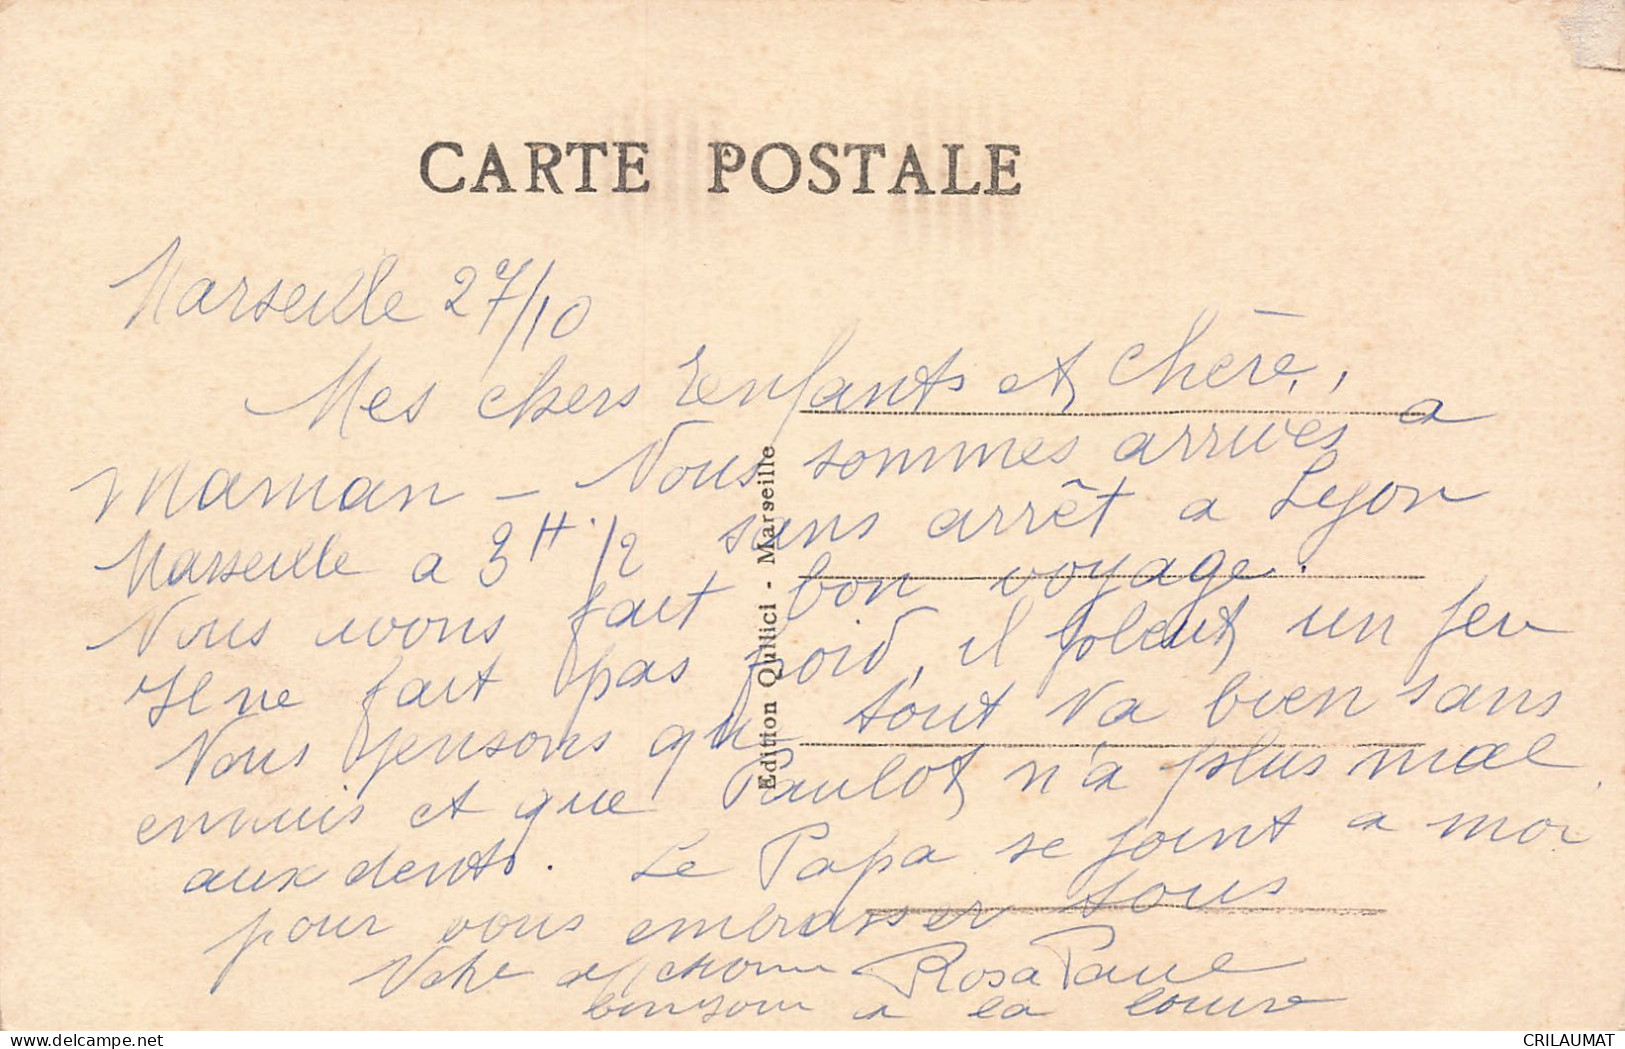 CARTE POSTALE
Marseille 27/10
Mes chers enfants et chère,
Maman - Nous sommes arrivés a
Marseille a 3H 1/2 sans arrêt a Lyon
Nous avons fait bon voyage.
Il ne fait pas froid, il pleut un peu
Nous pensons que tout va bien sans
ennuis et que Paulot n'a plus mal
aux dents. Le Papa se joint a moi
pour vous embrasser tous
Votre Rosa Paul
bonjour a la
Edition Quilici - Marseille
CRILAUMAT